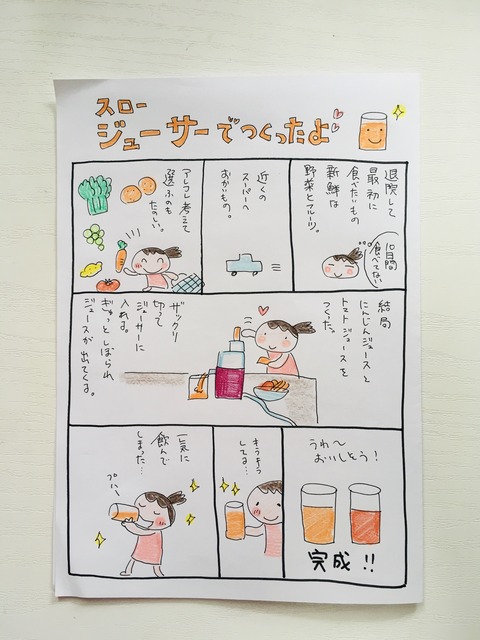 スロー
ジューサーでつくったよ
退院して
最初に
食べたいもの
新鮮は
野菜とフルーツ。
10日間
食べてない
近くの
スーパーへ
おかいもの。
アレコレ考えて
選ぶのも
たのしい。
結局
にんじんジュースと
トマトジュースを
つくった。
ザックリ
切って
ジューサーに
入れる。
ぎゅっとしぼられ
ジュースが出てくる。
うわ〜
おいしそう!
完成!!
キラキラ
してる…
一気に
飲んで
しまった…
プハ〜